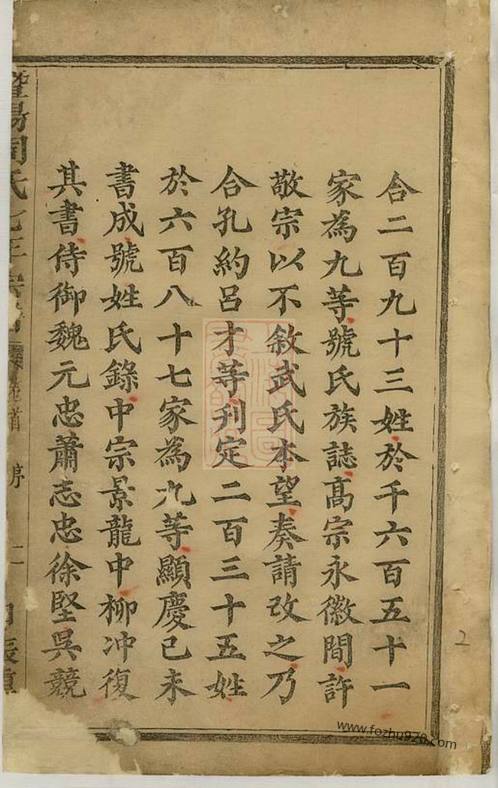 合二百九十三姓於千六百五十一
家為九等號氏族誌高宗永徽間許
敬宗以不敘武氏本望奏請改之乃
合孔約呂才等刊定二百三十五姓
於六百八十七家為九等顯慶己未
書成號姓氏錄中宗景龍中柳冲復
其書侍御魏元忠蕭志忠徐堅吳競
暨陽周氏
首 序
二
2
www.fozhu920.com